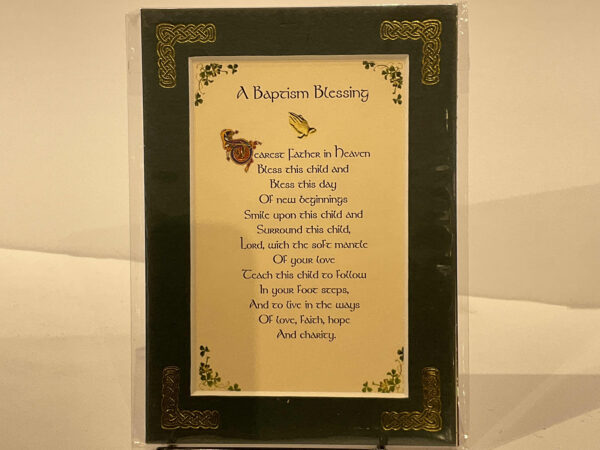 A Baptism Blessing
Dearest Father in Heaven
Bless this child and
Bless this day
Of new beginnings
Smile upon this child and
Surround this child,
Lord, with the soft mantle
Of your love
Teach this child to follow
In your foot steps,
And to live in the ways
Of love, faith, hope
And charity.